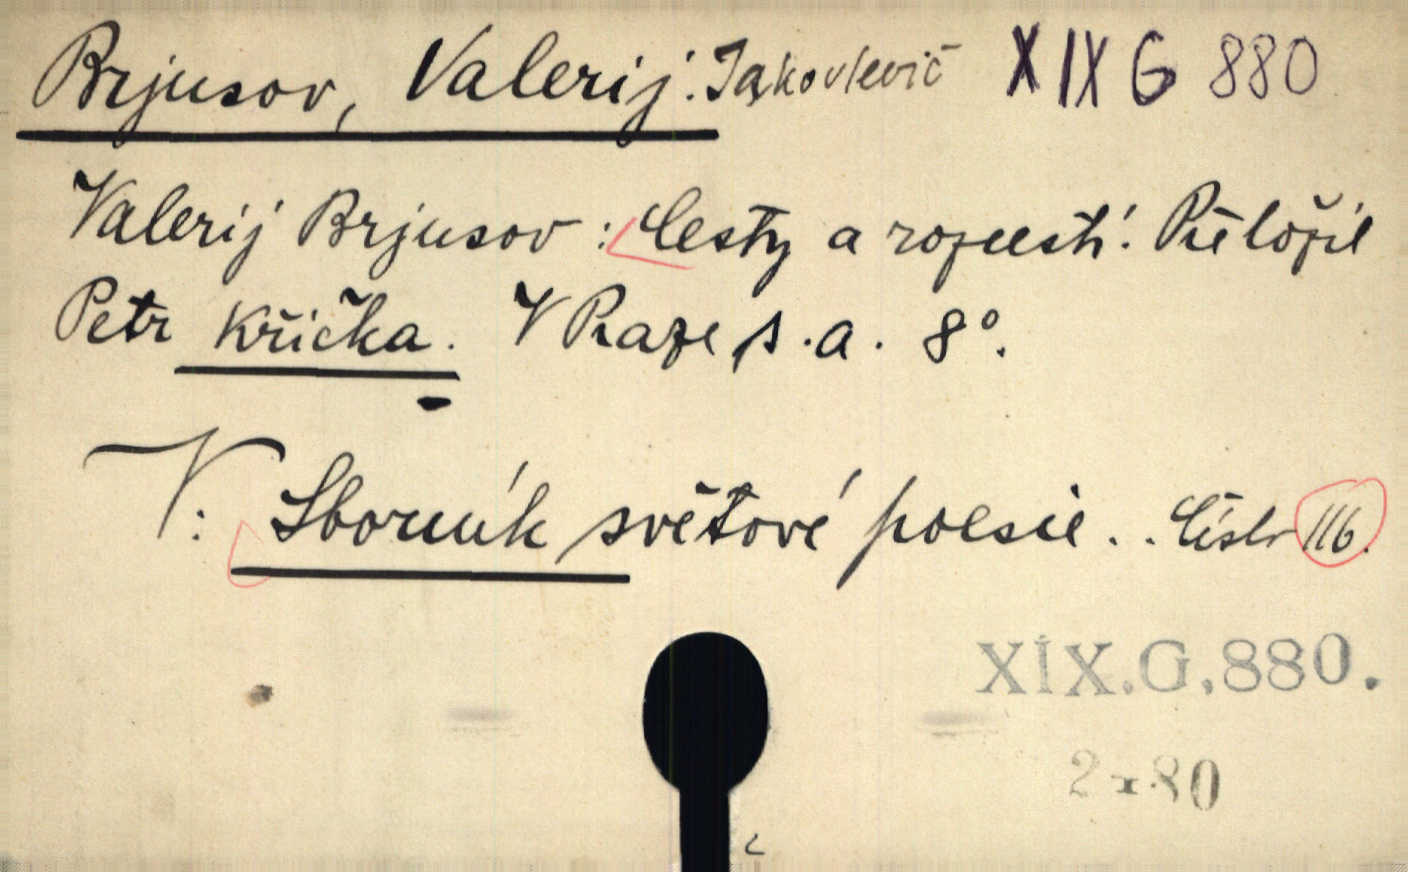 Brjusov, Valerij Jakovlevič XIX G 880
Valerij Brjusov: Cesty a rozcestí. Přeložil
Petr Křička. V Praze s.a. 8°.
V: Sborník světové poesie.. Číslo 116.
XIX.G.880.
2 x 80